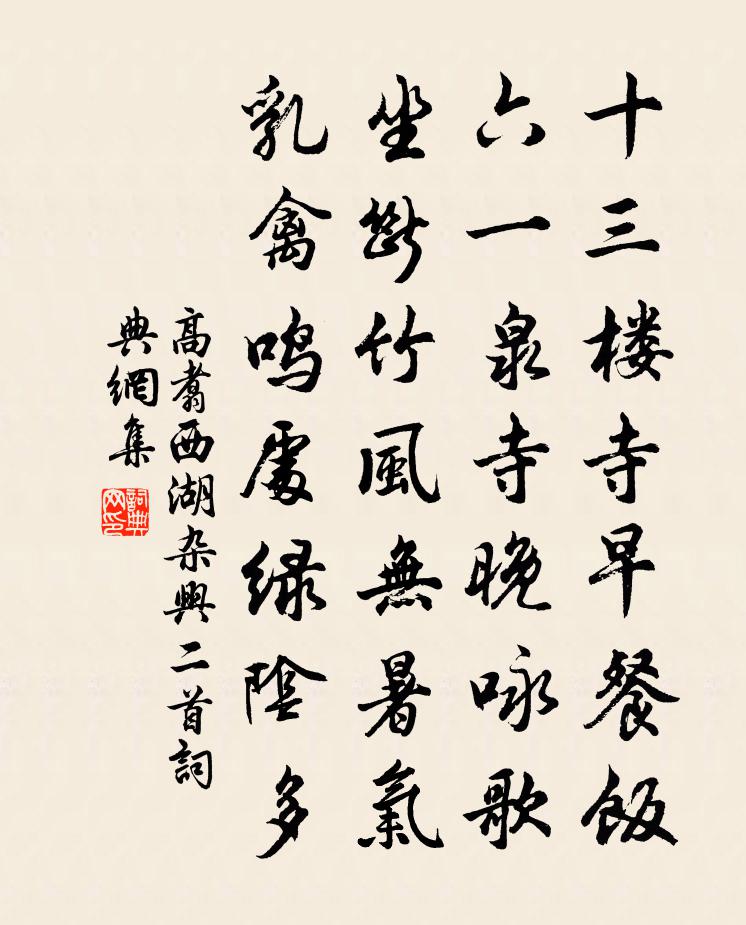 十三楼寺早餐饭
六一泉寺晚咏歌
坐断竹风無暑氣
乳禽鸣處绿陰多
高翥西湖杂興二首詞
典網集
詞典
网印